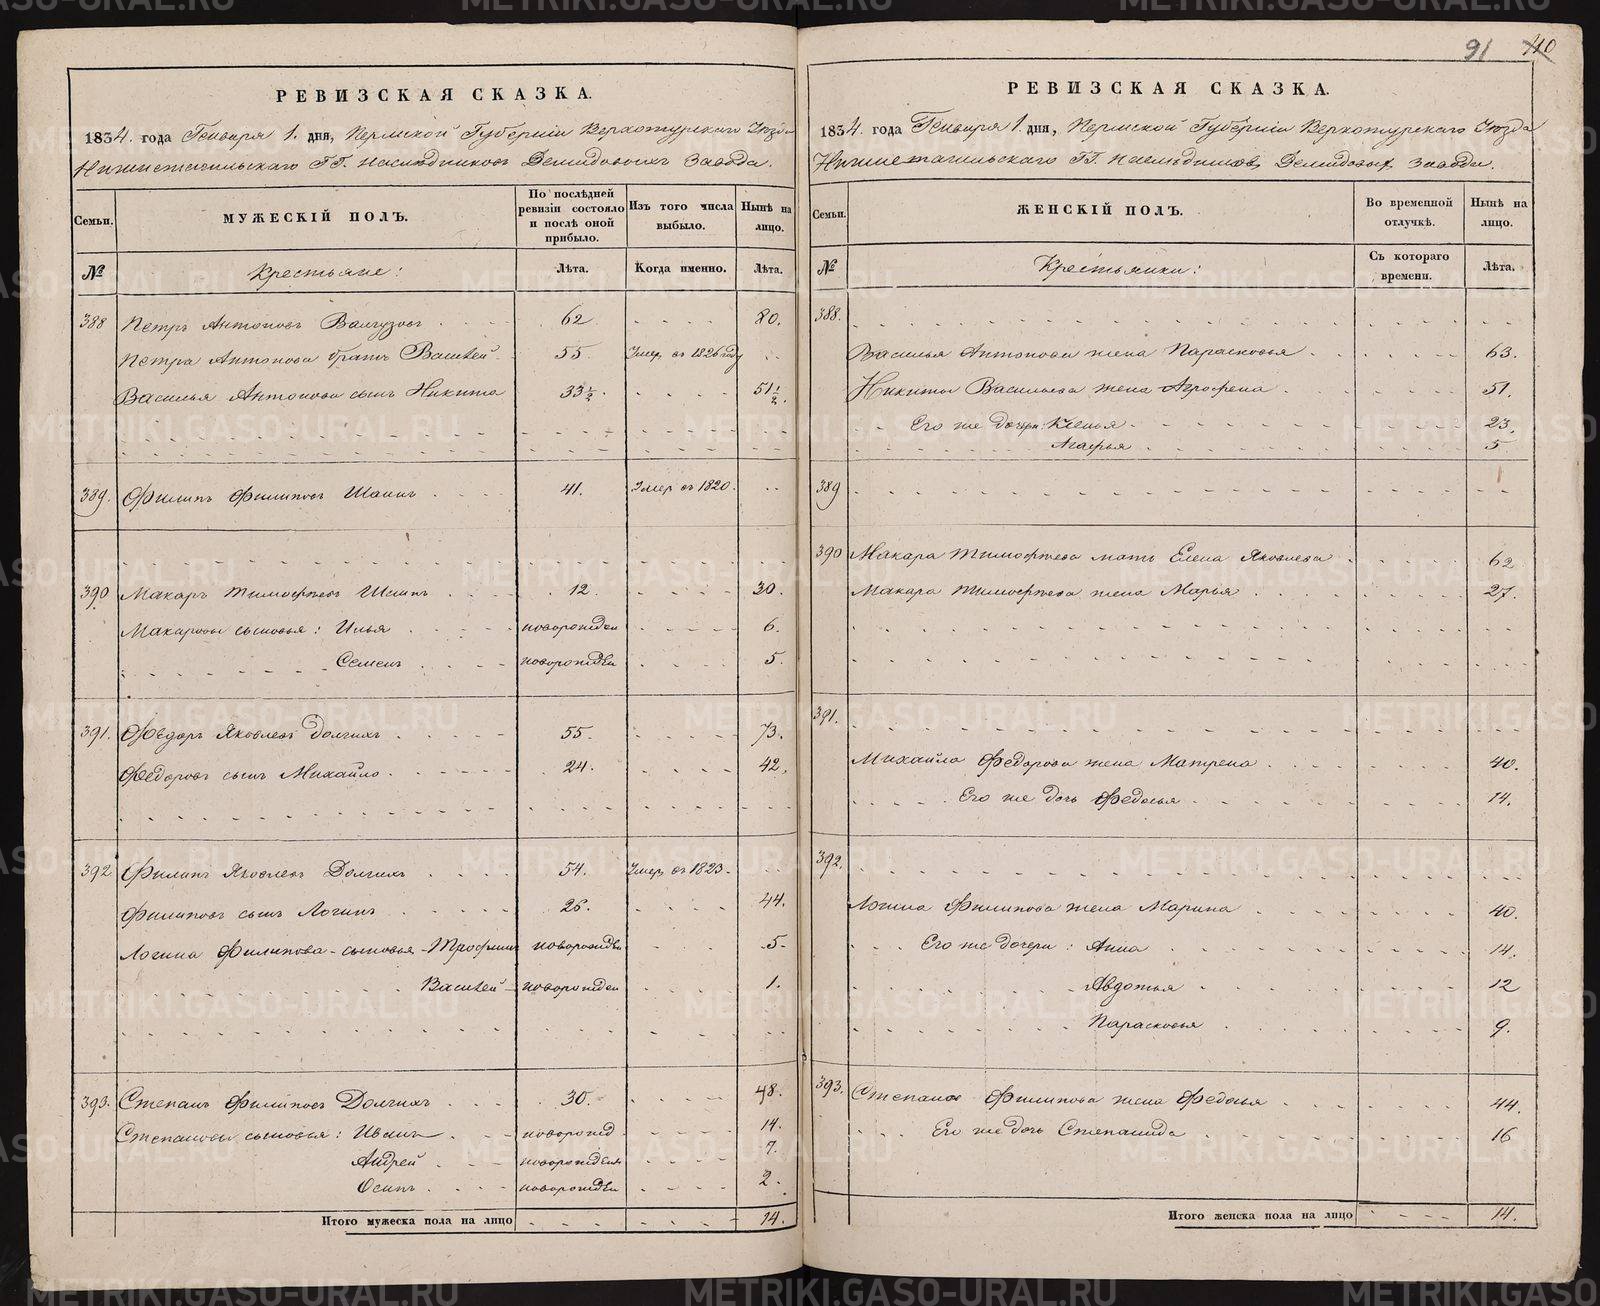 91 110
РЕВИЗСКАЯ СКАЗКА.
1834. года Генваря 1. дня, Пермской Губерніи Верхотурскаго Уѣзда
Нижнетагильскаго ГГ. Наслѣдниковъ Демидовыхъ Завода.
Семьи.
МУЖЕСКІЙ ПОЛЪ.
По послѣдней ревизіи состояло и послѣ оной прибыло.
Изъ того числа выбыло.
Нынѣ на лицо.
№ Крестьяне: Лѣта. Когда именно. Лѣта.
388 Петръ Антоновъ Валгузовъ 62 80.
Петра Антонова братъ Василей 55. Умер въ 1826 году
Василья Антонова сынъ Никита 33½ 51½.
389. Филипъ Филиповъ Шаинъ 41. Умер въ 1820.
390 Макаръ Тимофѣевъ Шаинъ 12. 30.
Макаровы сыновья: Илья новорожден 6.
Семенъ новорожден 5.
391. Ѳедоръ Яковлевъ Долгихъ 55. 73.
Федоровъ сынъ Михайло 24. 42.
392 Филипъ Яковлевъ Долгихъ 54. Умер въ 1823.
Филиповъ сынъ Логинъ 26. 44.
Логина Филипова сыновья Трофимъ новорожден 5.
Василей новорожден 1.
393. Степанъ Филиповъ Долгихъ 30. 48.
Степановы сыновья: Иванъ новорожд 14.
Андрей новорожден 7.
Осипъ новорожден 2.
Итого мужеска пола на лицо 14.
РЕВИЗСКАЯ СКАЗКА.
1834. года Генваря 1. дня, Пермской Губерніи Верхотурскаго Уѣзда
Нижнетагильскаго ГГ. Наслѣдников Демидовых завода.
Семьи.
ЖЕНСКІЙ ПОЛЪ.
Во временной отлучкѣ.
Нынѣ на лицо.
№ Крестьянки: Съ котораго времени. Лѣта.
388.
Василья Антонова жена Парасковья 63.
Никиты Васильева жена Агрофена 51.
Его же дочери: Ксенья 23.
Агафья 5
389
390 Макара Тимофѣева мать Елена Яковлева 62
Макара Тимофѣева жена Марья 27.
391.
Михайла Федорова жена Матрена 40.
Его же дочь Федосья 14.
392.
Логина Филипова жена Марина 40.
Его же дочери: Анна 14.
Авдотья 12
Парасковья 9.
393. Степана Филипова жена Федосья 44.
Его же дочь Степанида 16
Итого женска пола на лицо 14.
METRIKI.GASO-URAL.RU